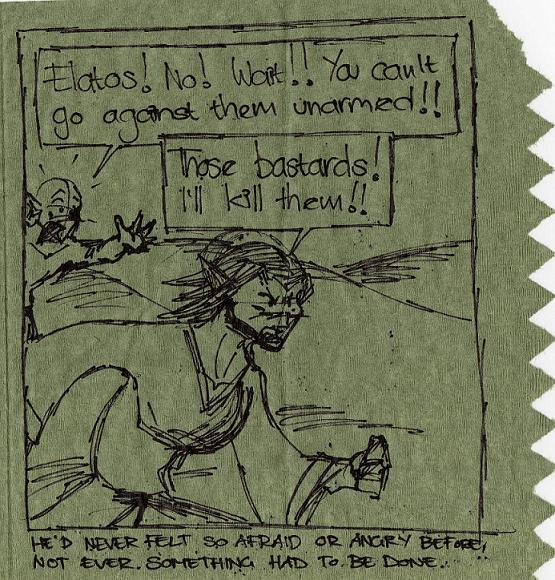 Elatos! No! Wait!! You can't
go against them unarmed!!
Those bastards!
I'll kill them!!
HE'D NEVER FELT SO AFRAID OR ANGRY BEFORE,
NOT EVER. SOMETHING HAD TO BE DONE...